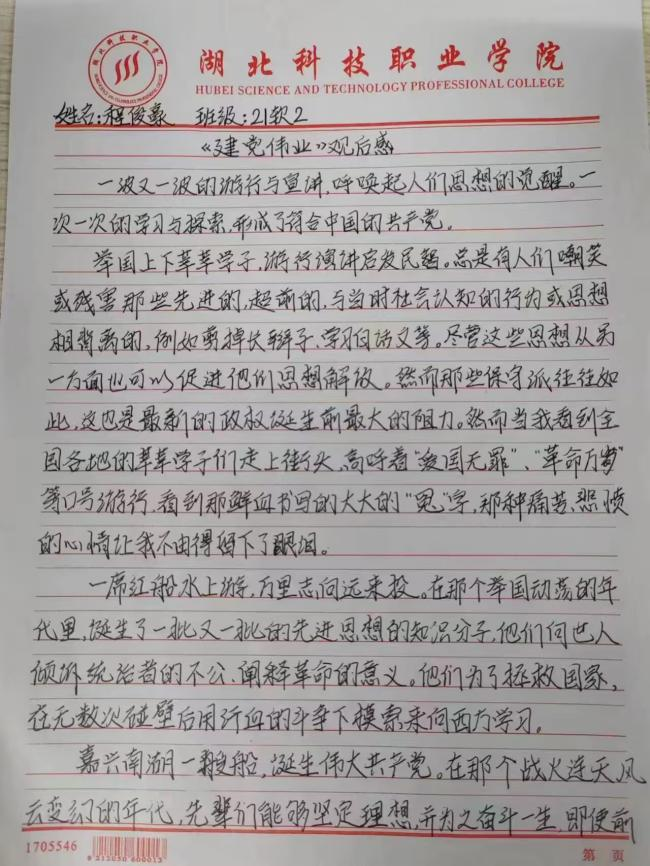 湖北科技职业学院
HUBEI SCIENCE AND TECHNOLOGY PROFESSIONAL COLLEGE
姓名:程俊豪 班级:21软2
《建党伟业》观后感
一波又一波的游行与宣讲,呼唤起人们思想的觉醒。一
次一次的学习与探索,形成了符合中国的共产党。
举国上下莘莘学子,游行演讲启发民智。总是有人们嘲笑
或残害那些先进的,超前的,与当时社会认知的行为或思想
相背离的,例如剪掉长辫子、学习白话文等。尽管这些思想从另
一方面也可以促进他们思想解放。然而那些保守派往往如
此,这也是最新的政权诞生前最大的阻力。然而当我看到全
国各地的莘莘学子们走上街头,高呼着“爱国无罪”、“革命万岁”
等口号游行,看到那鲜血书写的大大的“冤”字,那种痛苦、悲愤
的心情让我不由得留下了眼泪。
一席红船水上游,万里志向远来投。在那个举国动荡的年
代里,诞生了一批又一批的先进思想的知识分子,他们向世人
倾诉统治者的不公、阐释革命的意义。他们为了拯救国家,
在无数次碰壁后用汗血的斗争下摸索来向西方学习。
嘉兴南湖一艘船,诞生伟大共产党。在那个战火连天风
云变幻的年代,先辈们能够坚定理想,并为之奋斗一生,即使前
1705546
第 页